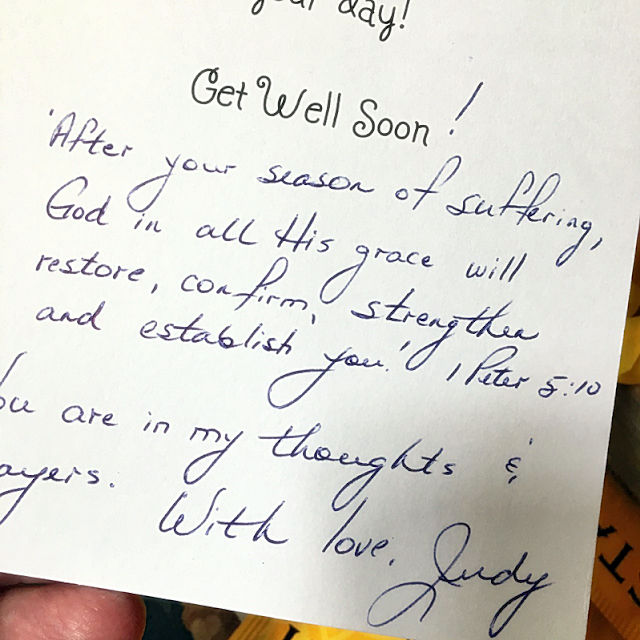 your day!
Get Well Soon!
'After your season of suffering,
God in all His grace will
restore, confirm, strengthen
and establish you.' 1 Peter 5:10
You are in my thoughts &
prayers.
With love, Judy